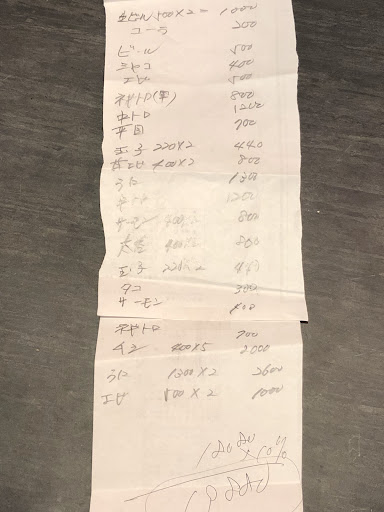 生ビール 500×2= 1000
コーラ 200
ビール 500
シャコ 400
エビ 500
ネギトロ(軍) 800
中トロ 1200
平目 700
玉子 220×2 440
甘エビ 400×2 800
うに 1300
1200
サーモン 400×2 800
400×2 800
玉子 220×2 440
タコ 300
サーモン 400
ネギトロ 700
400×5 2000
うに 1300×2 2600
エビ 500×2 1000
×10%